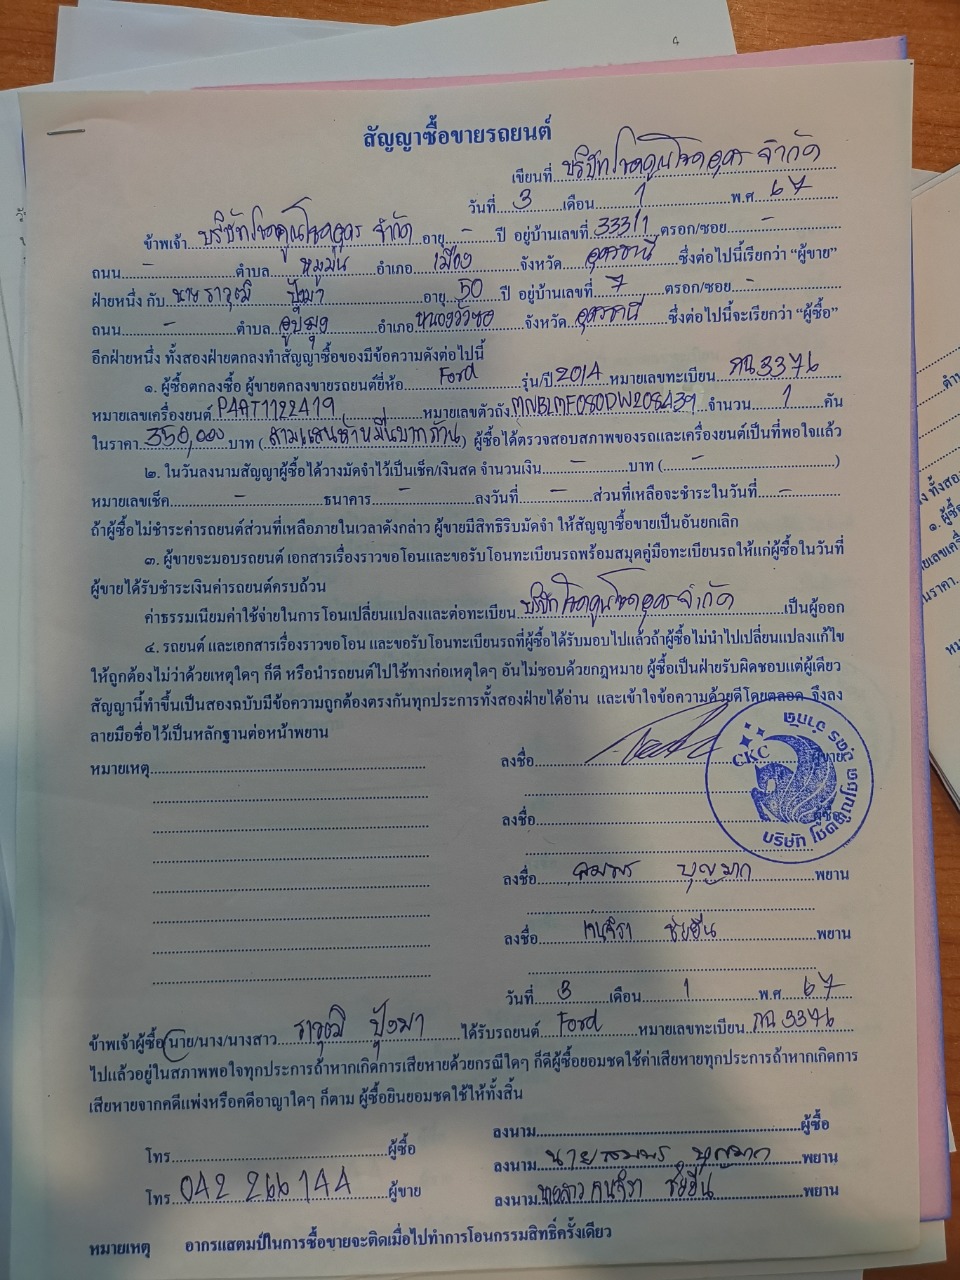 สัญญาซื้อขายรถยนต์
เขียนที่ บริษัทโชคคูณโชคอุดร จำกัด
วันที่ 3 เดือน 1 พ.ศ 67
ข้าพเจ้า บริษัทโชคคูณโชคอุดร จำกัด อายุ - ปี อยู่บ้านเลขที่ 333/1 ตรอก/ซอย -
ถนน - ตำบล หมูม่น อำเภอ เมือง จังหวัด อุดรธานี ซึ่งต่อไปนี้เรียกว่า “ผู้ขาย”
ฝ่ายหนึ่ง กับ นาย ราวุฒิ ปุ้งมา อายุ 50 ปี อยู่บ้านเลขที่ 7 ตรอก/ซอย -
ถนน - ตำบล อูบมุง อำเภอ หนองวัวซอ จังหวัด อุดรธานี ซึ่งต่อไปนี้จะเรียกว่า “ผู้ซื้อ”
อีกฝ่ายหนึ่ง ทั้งสองฝ่ายตกลงทำสัญญาซื้อของมีข้อความดังต่อไปนี้
๑. ผู้ซื้อตกลงซื้อ ผู้ขายตกลงขายรถยนต์ยี่ห้อ Ford รุ่น/ปี 2014 หมายเลขทะเบียน กฉ 3376
หมายเลขเครื่องยนต์ P4AT1122419 หมายเลขตัวถัง MNBLMF080DW208439 จำนวน 1 คัน
ในราคา 350,000 บาท ( สามแสนห้าหมื่นบาทถ้วน ) ผู้ซื้อได้ตรวจสอบสภาพของรถและเครื่องยนต์เป็นที่พอใจแล้ว
๒. ในวันลงนามสัญญาผู้ซื้อได้วางมัดจำไว้เป็นเช็ค/เงินสด จำนวนเงิน - บาท ( - )
หมายเลขเช็ค - ธนาคาร - ลงวันที่ - ส่วนที่เหลือจะชำระในวันที่ -
ถ้าผู้ซื้อไม่ชำระค่ารถยนต์ส่วนที่เหลือภายในเวลาดังกล่าว ผู้ขายมีสิทธิริบมัดจำ ให้สัญญาซื้อขายเป็นอันยกเลิก
๓. ผู้ขายจะมอบรถยนต์ เอกสารเรื่องราวขอโอนและขอรับโอนทะเบียนรถพร้อมสมุดคู่มือทะเบียนรถให้แก่ผู้ซื้อในวันที่
ผู้ขายได้รับชำระเงินค่ารถยนต์ครบถ้วน
ค่าธรรมเนียมค่าใช้จ่ายในการโอนเปลี่ยนแปลงและต่อทะเบียน บริษัทโชคคูณโชคอุดร จำกัด เป็นผู้ออก
๔. รถยนต์ และเอกสารเรื่องราวขอโอน และขอรับโอนทะเบียนรถที่ผู้ซื้อได้รับมอบไปแล้วถ้าผู้ซื้อไม่นำไปเปลี่ยนแปลงแก้ไข
ให้ถูกต้องไม่ว่าด้วยเหตุใดๆ ก็ดี หรือนำรถยนต์ไปใช้ทางก่อเหตุใดๆ อันไม่ชอบด้วยกฎหมาย ผู้ซื้อเป็นฝ่ายรับผิดชอบแต่ผู้เดียว
สัญญานี้ทำขึ้นเป็นสองฉบับมีข้อความถูกต้องตรงกันทุกประการทั้งสองฝ่ายได้อ่าน และเข้าใจข้อความด้วยดีโดยตลอด จึงลง
ลายมือชื่อไว้เป็นหลักฐานต่อหน้าพยาน
หมายเหตุ ลงชื่อ ผู้ขาย
CKC
บริษัท โชคคูณโชค อุดร จำกัด
ลงชื่อ ผู้ซื้อ
ลงชื่อ สมพร บุญมาก พยาน
ลงชื่อ เจนจิรา ชัยยืน พยาน
วันที่ 3 เดือน 1 พ.ศ 67
ข้าพเจ้าผู้ซื้อ นาย/นาง/นางสาว ราวุฒิ ปุ้งมา ได้รับรถยนต์ Ford หมายเลขทะเบียน กฉ 3376
ไปแล้วอยู่ในสภาพพอใจทุกประการถ้าหากเกิดการเสียหายด้วยกรณีใดๆ ก็ดีผู้ซื้อยอมชดใช้ค่าเสียหายทุกประการถ้าหากเกิดการ
เสียหายจากคดีแพ่งหรือคดีอาญาใดๆ ก็ตาม ผู้ซื้อยินยอมชดใช้ให้ทั้งสิ้น
ลงนาม ผู้ซื้อ
โทร ผู้ซื้อ ลงนาม นายสมพร บุญมาก พยาน
โทร 042 266 144 ผู้ขาย ลงนาม นางสาว เจนจิรา ชัยยืน พยาน
หมายเหตุ อากรแสตมป์ในการซื้อขายจะติดเมื่อไปทำการโอนกรรมสิทธิ์ครั้งเดียว